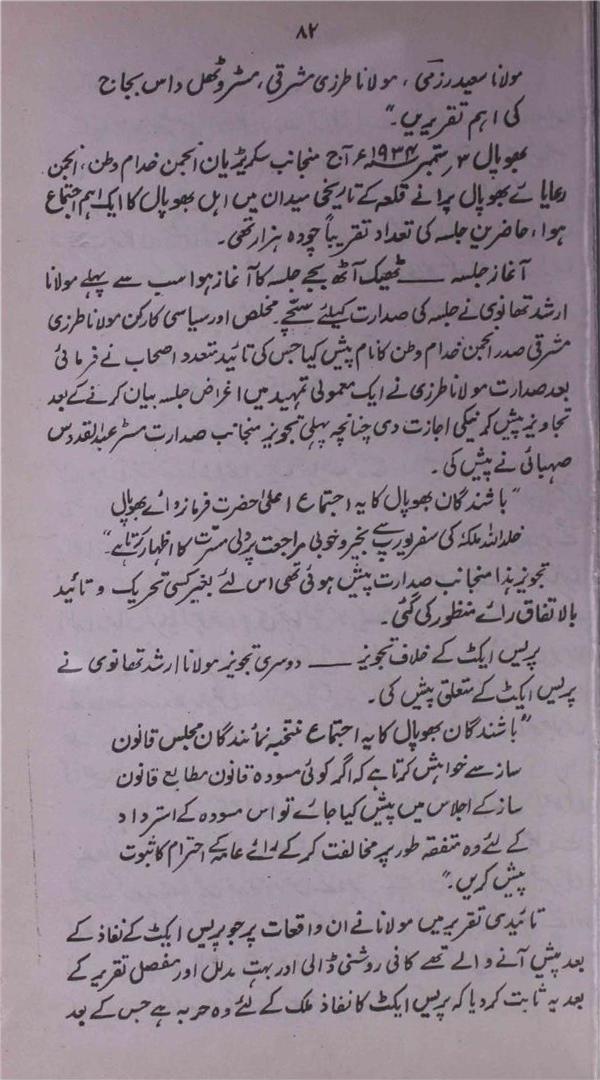 ۸۲
مولانا سعید رزمی، مولانا طرزی مشرقی، مسٹر وٹھل داس بجاج
کی اہم تقریریں۔"
بھوپال ۳ ستمبر ۱۹۳۴ء آج منجانب سکریٹریان انجمن خدام وطن، انجمن
رعایائے بھوپال پرانے قلعہ کے تاریخی میدان میں اہل بھوپال کا ایک اہم اجتماع
ہوا، حاضرین جلسہ کی تعداد تقریباً چودہ ہزار تھی۔
آغاز جلسہ —— ٹھیک آٹھ بجے جلسہ کا آغاز ہوا سب سے پہلے مولانا
ارشد تھانوی نے جلسہ کی صدارت کیلئے سچے۔ مخلص اور سیاسی کارکن مولانا طرزی
مشرقی صدر انجمن خدام وطن کا نام پیش کیا جس کی تائید متعدد اصحاب نے فرمائی
بعد صدارت مولانا طرزی نے ایک معمولی تمہید میں اغراض جلسہ بیان کرنے کے بعد
تجاویز پیش کرنیکی اجازت دی چنانچہ پہلی تجویز منجانب صدارت مسٹر عبدالقدوس
صہبائی نے پیش کی۔
"باشندگان بھوپال کا یہ اجتماع اعلیٰ حضرت فرمانروائے بھوپال
خلد اللہ ملکہٗ کی سفر یورپ سے بخیر و خوبی مراجعت پر دلی مسرت کا اظہار کرتا ہے۔"
تجویز ہذا منجانب صدارت پیش ہوئی تھی اس لئے بغیر کسی تحریک و تائید
بالاتفاق رائے منظور کی گئی۔
پریس ایکٹ کے خلاف تجویز —— دوسری تجویز مولانا ارشد تھانوی نے
پریس ایکٹ کے متعلق پیش کی۔
"باشندگان بھوپال کا یہ اجتماع منتخبہ نمائندگان مجلس قانون
ساز سے خواہش کرتا ہے کہ اگر کوئی مسودہ قانون مطابع قانون
ساز کے اجلاس میں پیش کیا جائے تو اس مسودہ کے استرداد
کے لئے وہ متفقہ طور پر مخالفت کر کے رائے عامہ کے احترام کا ثبوت
پیش کریں۔"
تائیدی تقریر میں مولانا نے ان واقعات پر جو پریس ایکٹ کے نفاذ کے
بعد پیش آنے والے تھے کافی روشنی ڈالی اور بہت مدلل اور مفصل تقریر کے
بعد یہ ثابت کر دیا کہ پریس ایکٹ کا نفاذ ملک کے لئے وہ حربہ ہے جس کے بعد